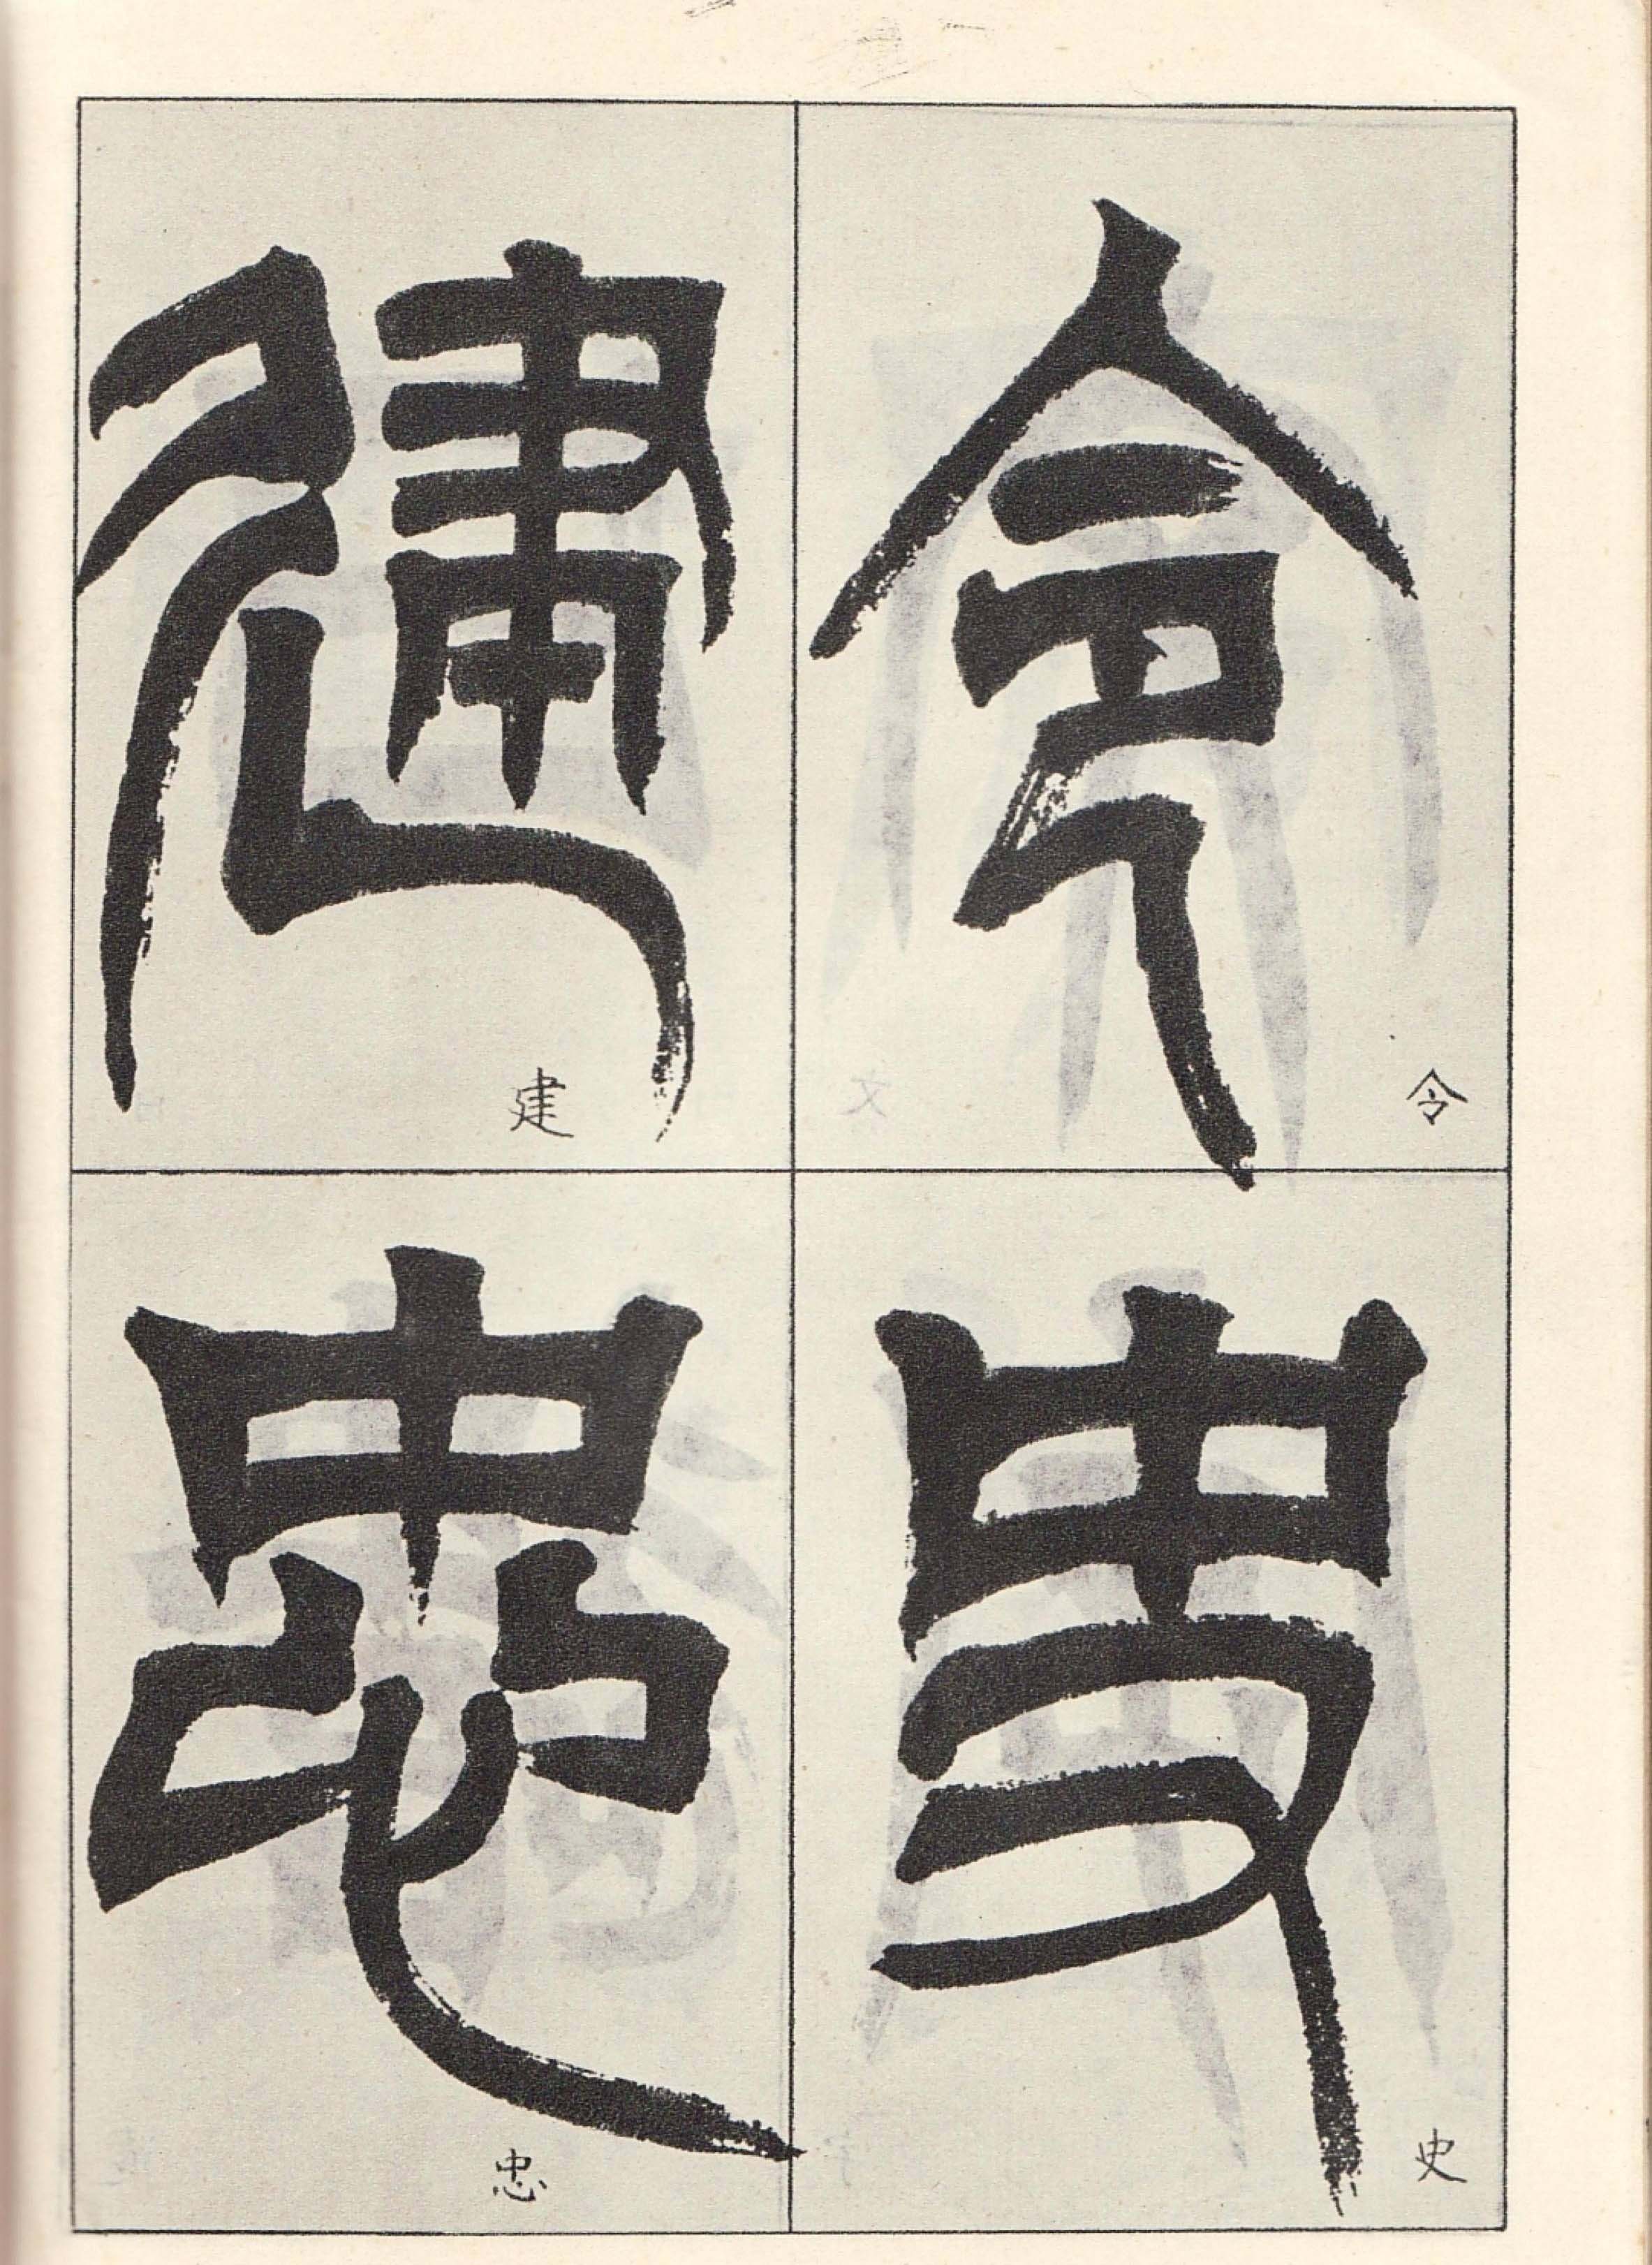 令
令
史
史
建
建
忠
忠